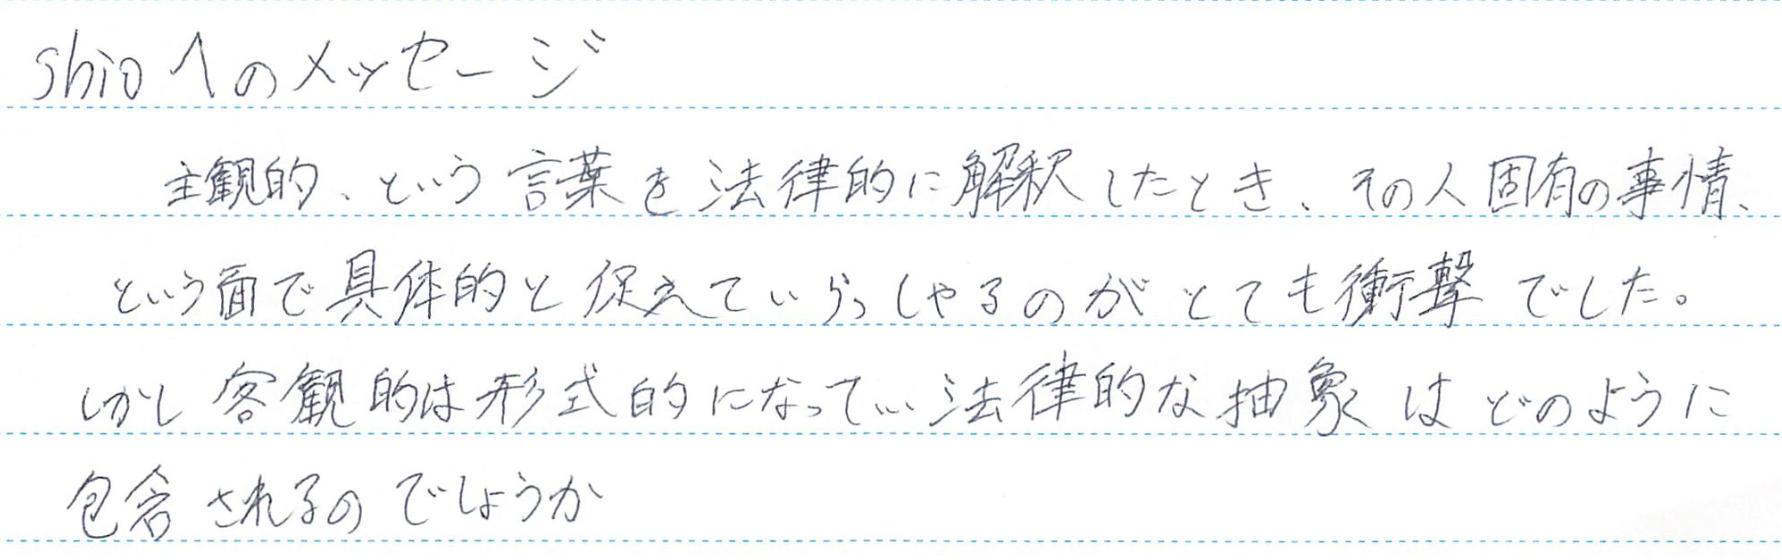 shioへのメッセージ
主観的、という言葉を法律的に解釈したとき、その人固有の事情、
という面で具体的と促えていらっしゃるのがとても衝撃でした。
しかし客観的は形式的になって… 法律的な抽象はどのように
包含されるのでしょうか